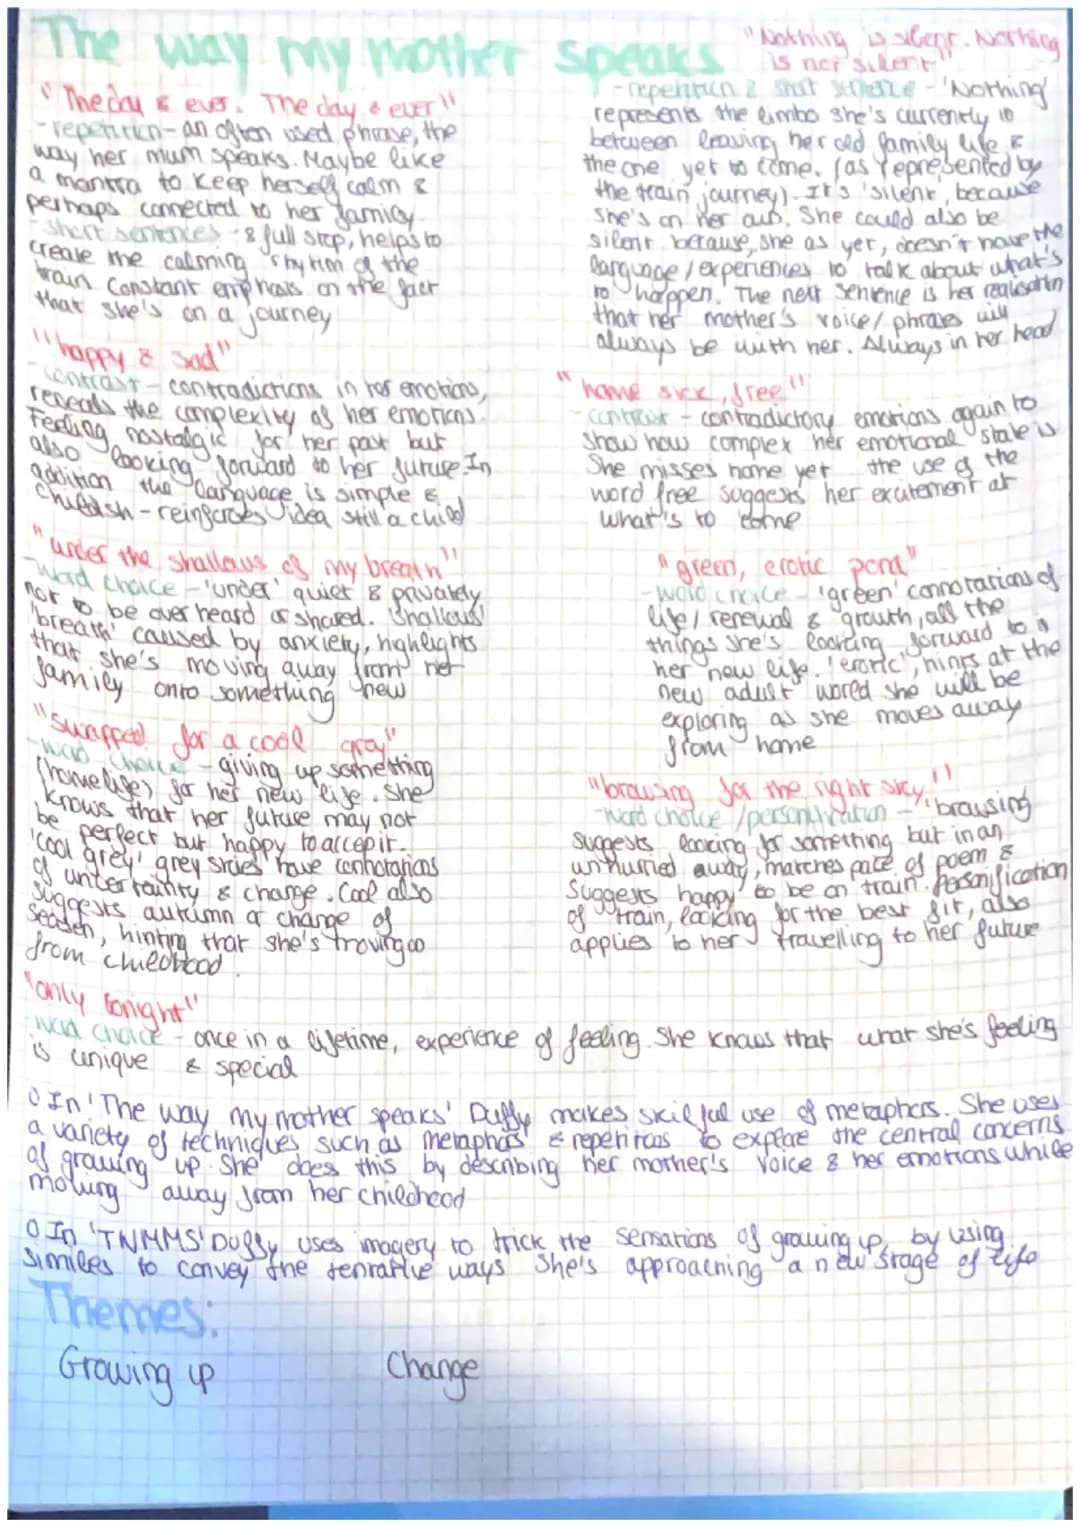 The way my mother speaks
"The day & ever. The day & ever"
- repetition - an often used phrase, the
way her mum speaks. Maybe like
a mantra to keep herself calm &
perhaps connected to her family
- short sentences - & full stop, helps to
create the calming rhythm of the
train. Constant emphasis on the fact
that she's on a journey
"happy & sad"
- contrast - contradictions in her emotions,
reveals the complexity of her emotions.
Feeling nostalgic for her past but
also looking forward to her future. In
addition the language is simple &
childish - reinforces idea still a child
"under the shallows of my breath"
- word choice - 'under' quiet & privately
not to be over heard or shared. 'shallows'
'breath' caused by anxiety, highlights
that she's moving away from her
family onto something new
"swapped for a cool grey"
- word choice - giving up something
(home life) for her new life. She
knows that her future may not
be perfect but happy to accept it.
'cool grey' grey skies have connotations
of uncertainty & change. Cool also
suggests autumn or change of
season, hinting that she's moving on
from childhood.
"only tonight"
- word choice - once in a lifetime, experience of feeling. She knows that what she's feeling
is unique & special
"Nothing is silent. Nothing
is not silent"
- repetition & short sentence - 'Nothing'
represents the limbo she's currently in
between leaving her old family life &
the one yet to come. (as represented by
the train journey). It's 'silent', because
she's on her own. She could also be
silent because, she as yet, doesn't have the
language / experiences to talk about what's
to happen. The next sentence is her realisation
that her mother's voice / phrases will
always be with her. Always in her head
"home sick, free"
- contrast - contradictory emotions again to
show how complex her emotional state is
She misses home yet the use of the
word free suggests her excitement at
what's to come
"green, erotic pond"
- word choice - 'green' connotations of
life / renewal & growth, all the
things she's looking forward to in
her new life. 'erotic', hints at the
new adult world she will be
exploring as she moves away
from home
"browsing for the right sky"
- word choice / personification - 'browsing'
suggests looking for something but in an
unhurried away, matches pace of poem &
suggests happy to be on train. Personification
of train, looking for the best fit, also
applies to her travelling to her future
o In 'The way my mother speaks' Duffy makes skilful use of metaphors. She uses
a variety of techniques such as metaphors & repetitions to explore the central concerns
of growing up. She does this by describing her mother's voice & her emotions while
moving away from her childhood
o In 'TNMMS' Duffy uses imagery to trick the sensations of growing up, by using
similes to convey the tentative ways she's approaching a new stage of life
Themes:
Growing up Change